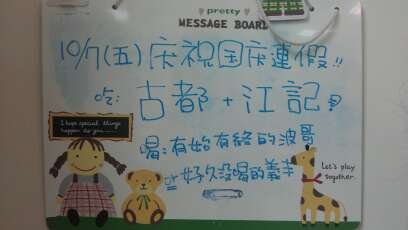 pretty
MESSAGE BOARD
10/7(五)庆祝国庆連假!!
吃: 古都+江記
喝:有始有終的波哥
or 好久沒喝的義丰
I hope special things
happen to you......
Let's play
together.